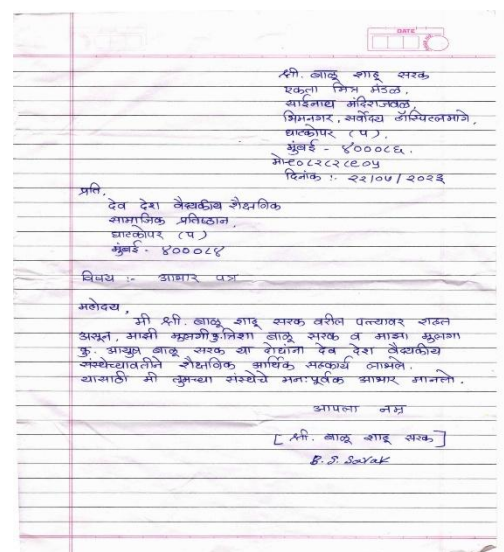 DATE
श्री. बाळू शाहू सरक
एकता मित्र मंडळ,
साईनाथ मंदिराजवळ,
भिमनगर, सर्वोदय हॉस्पिटलमागे,
घाटकोपर (प).
मुंबई - ४०००८६.
मो-९०८२८२८९०५
दिनांक :- २२/०५/२०२३
प्रति,
देव देश वैद्यकीय शैक्षणिक
सामाजिक प्रतिष्ठान,
घाटकोपर (प)
मुंबई - ४०००८४
विषय :- आभार पत्र
महोदय,
मी श्री. बाळू शाहू सरक वरील पत्त्यावर राहत
असून, माझी मुलगी कु. निशा बाळू सरक व माझा मुलगा
कु. आयुष बाळू सरक या दोघांना देव देश वैद्यकीय
संस्थेच्यावतीने शैक्षणिक आर्थिक सहकार्य लाभले.
यासाठी मी तुमच्या संस्थेचे मनःपूर्वक आभार मानतो.
आपला नम्र
[ श्री. बाळू शाहू सरक ]
B. S. Sarak